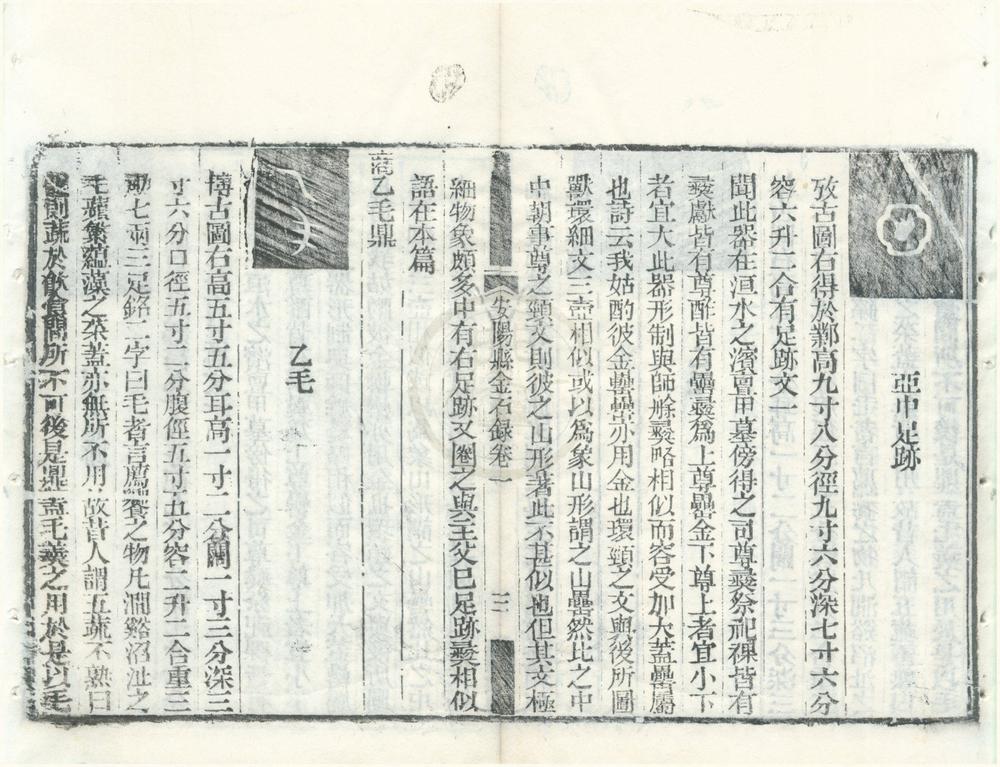 亞中足跡
攷古圖右得於鄴高九寸八分徑九寸六分深七寸六分
容六升二合有足跡文一
聞此器在洹水之濱亶甲墓傍得之司尊彝祭祀祼皆有
彝獻皆有尊酢皆有罍彝爲上尊罍金下尊上者宜小下
者宜大此器形制與師艅彝略相似而容受加大蓋罍屬
也詩云我姑酌彼金罍罍亦用金也環頸之文與後所圖
獸環細文三壺相似或以爲象山形謂之山罍然比之中
中朝事尊之頸文則彼之山形著此不甚似也但其文極
安陽縣金石錄卷一
三
細物象頗多中有右足跡又圈之與王父巳足跡彝相似
語在本篇
商乙毛鼎
乙毛
博古圖右高五寸五分耳高一寸二分闊一寸三分深三
寸六分口徑五寸二分腹徑五寸五分容二升二合重三
七兩三足銘二字曰毛者言薦羞之物凡澗谿沼沚之
毛蘋蘩薀藻之菜蓋亦無所不用故昔人謂五蔬不熟曰
則蔬於飲食間所不可後是鼎蓋毛羹之用於是以毛